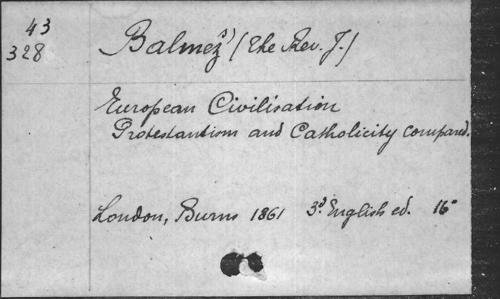 43
328
Balmez (The Rev. J.)
European Civilisation
Protestantism and Catholicity compared.
London, Burns 1861 3d English ed. 16°